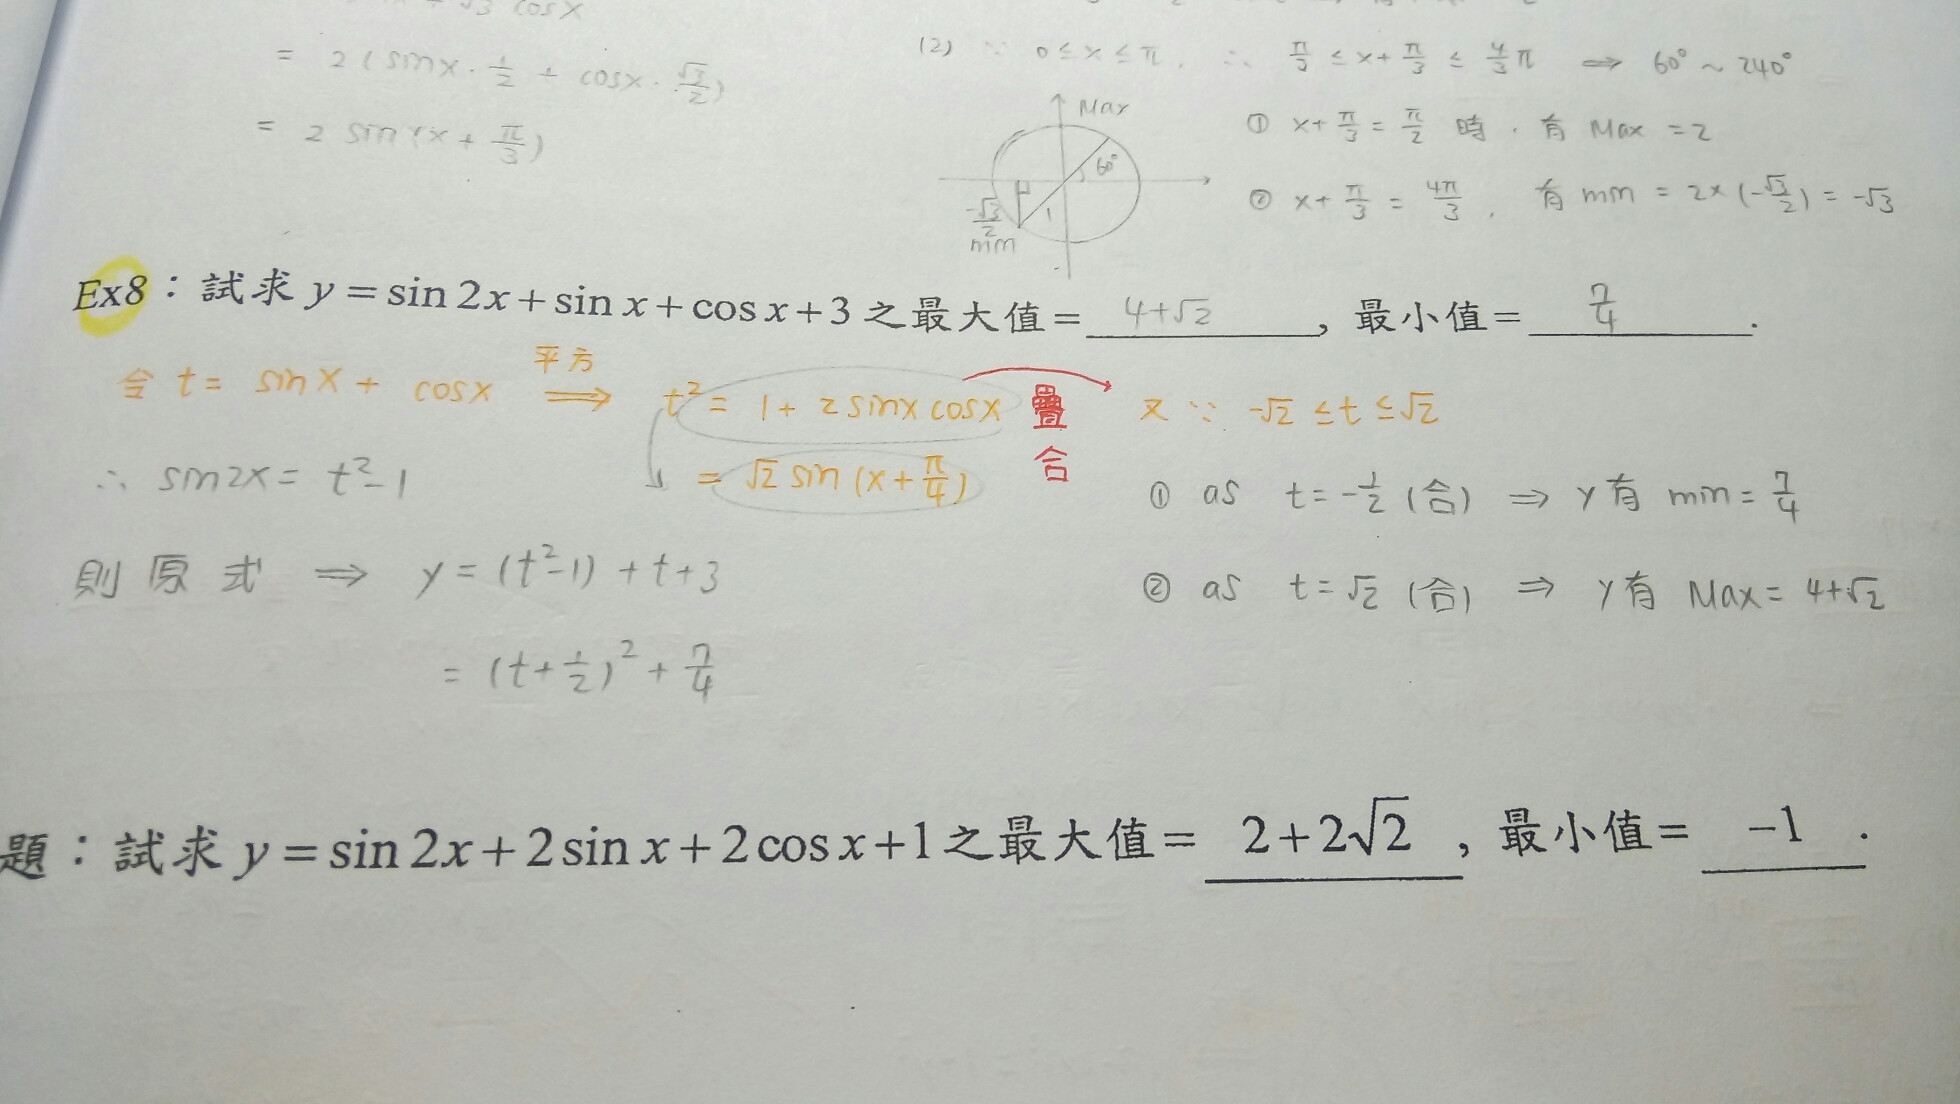 √3 cosx
= 2 (sinx · 1/2 + cosx · √3/2)
= 2 sin (x + π/3)
(2) ∵ 0 ≤ x ≤ π, ∴ π/3 ≤ x + π/3 ≤ 4/3 π ⇒ 60° ~ 240°
Max
60°
1
-√3/2
min
① x + π/3 = π/2 時, 有 Max = 2
② x + π/3 = 4π/3, 有 min = 2×(-√3/2) = -√3
Ex8：試求 y = sin 2x + sin x + cos x + 3 之最大值 = 4+√2 , 最小值 = 7/4 .
令 t = sinx + cosx 平方 ⇒ t² = 1 + 2 sinx cosx
= √2 sin (x + π/4)
疊合
∴ sin2x = t² - 1
則原式 ⇒ y = (t²-1) + t + 3
= (t + 1/2)² + 7/4
又 ∵ -√2 ≤ t ≤ √2
① as t = -1/2 (合) ⇒ y有 min = 7/4
② as t = √2 (合) ⇒ y有 Max = 4+√2
題：試求 y = sin 2x + 2 sin x + 2 cos x + 1 之最大值 = 2+2√2 , 最小值 = -1 .